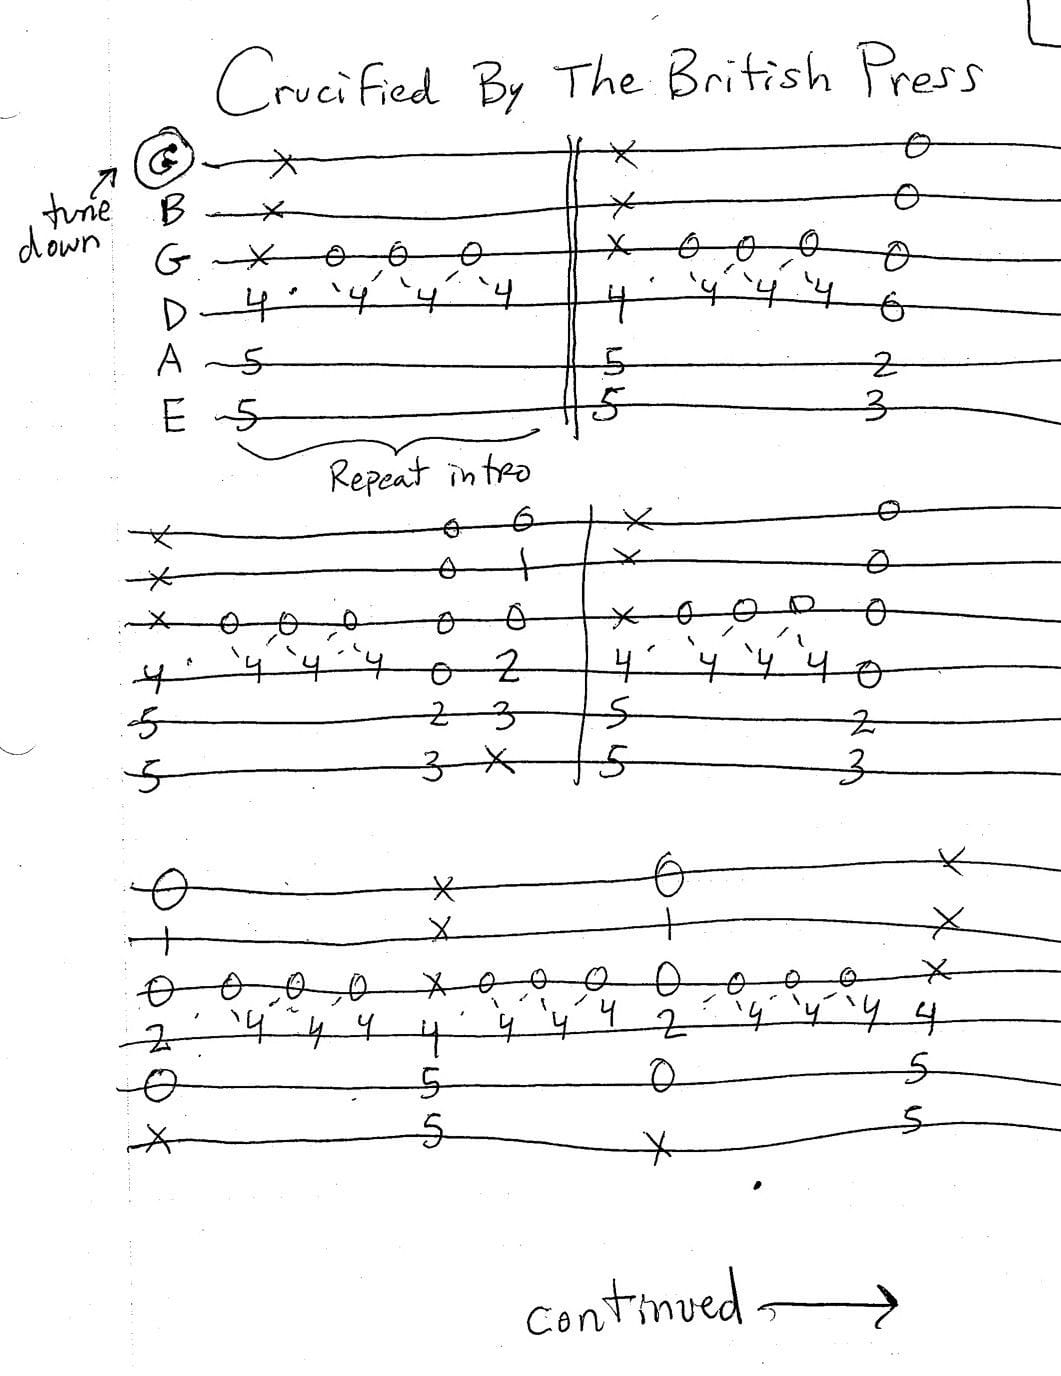 Crucified By The British Press
G x x 0
tune down B x x 0
G x 0 0 0 x 0 0 0 0
D 4 4 4 4 4 4 4 4 0
A 5 5 2
E 5 5 3
Repeat intro
x 0 0 x 0
x 0 1 x 0
x 0 0 0 0 0 x 0 0 0 0
4 4 4 4 0 2 4 4 4 4 0
5 2 3 5 2
5 3 x 5 3
0 x 0 x
1 x 1 x
0 0 0 0 x 0 0 0 0 0 0 0 x
2 4 4 4 4 4 4 4 2 4 4 4 4
0 5 0 5
x 5 x 5
continued →